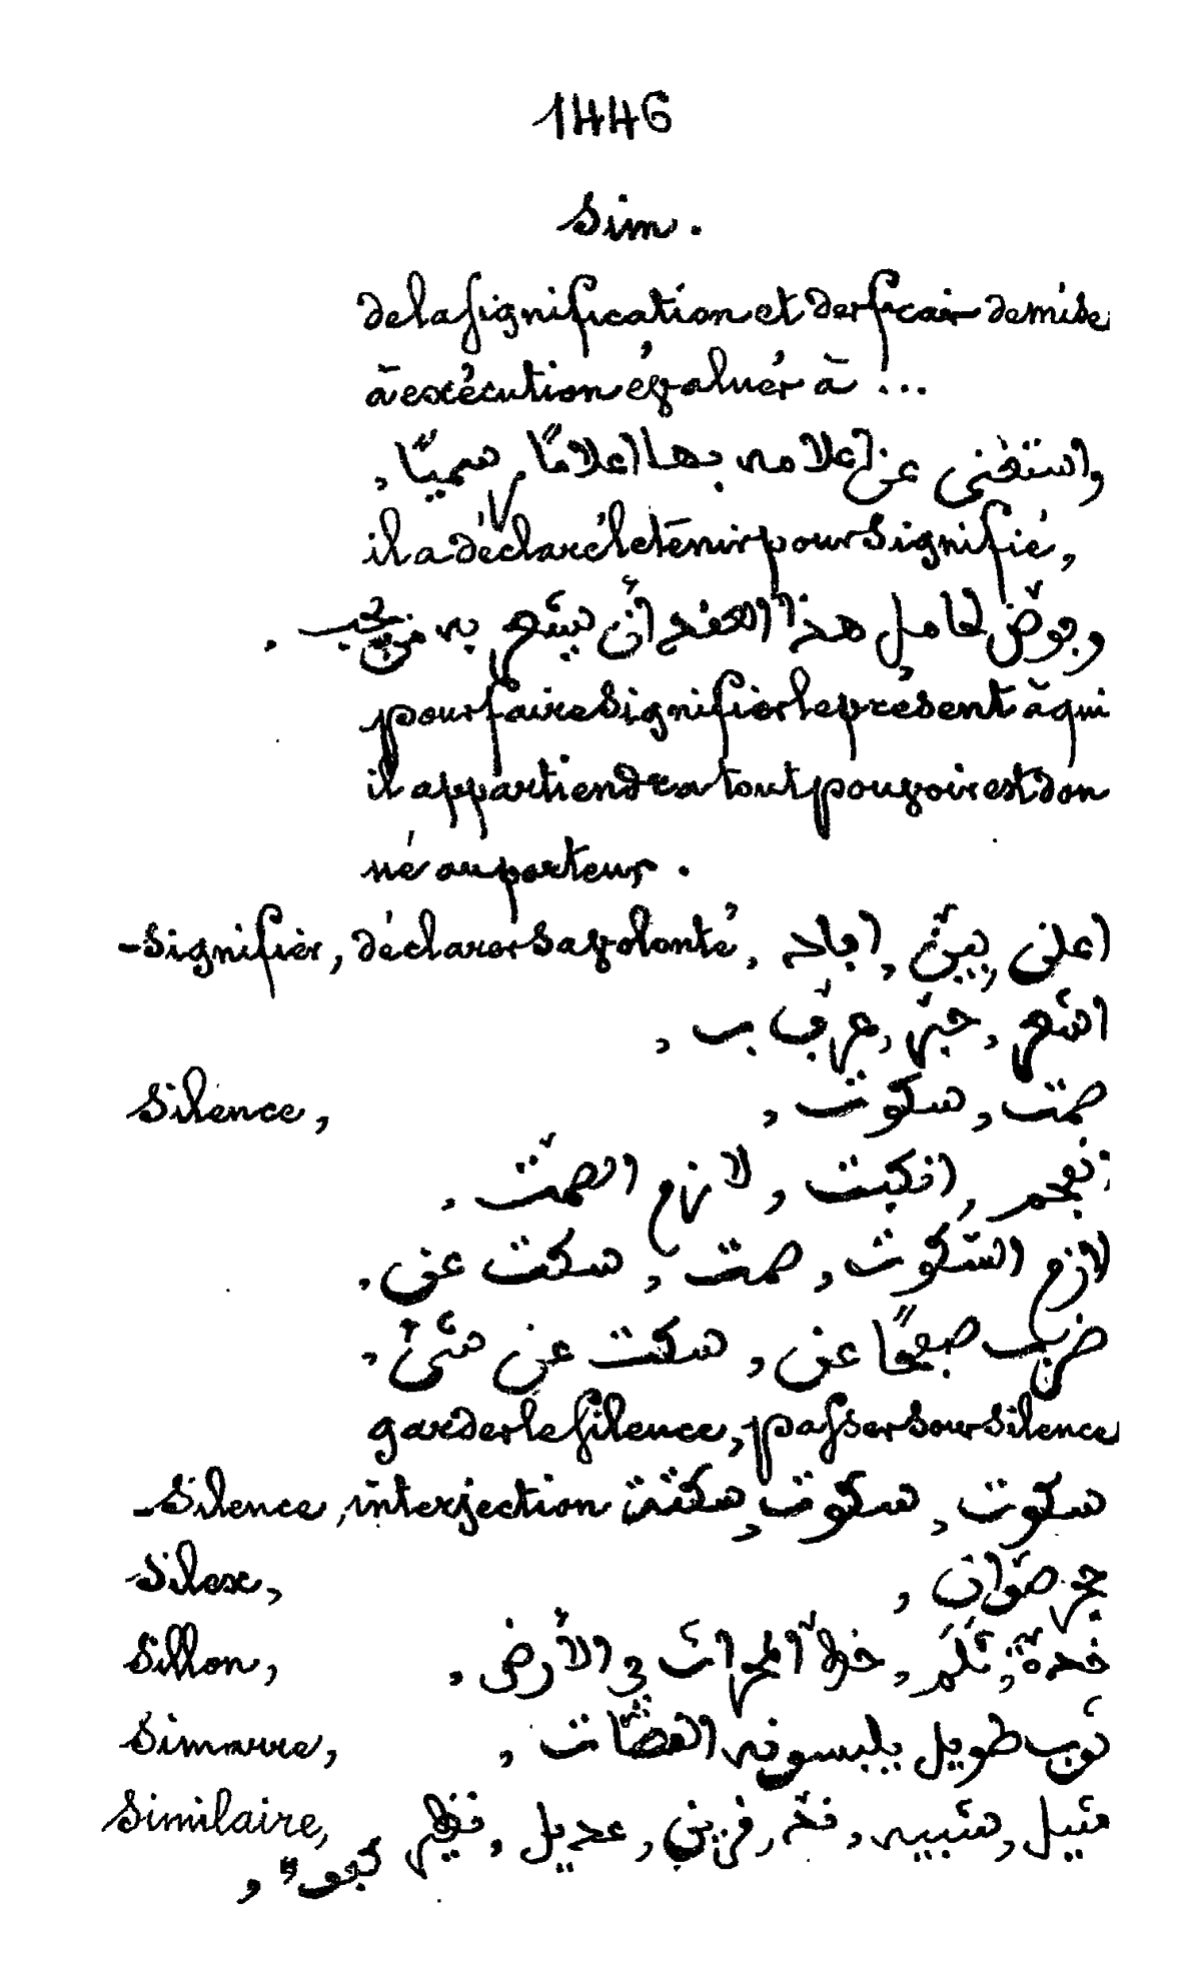 1446
Sim.
de la signification et des frais de mise
à exécution évaluér à ...
واستغنى عن اعلامه بها اعلامًا رسميًّا ,
il a déclaré le ténir pour signifié,
وفوّض لحامل هذا العقد أن يشعر به من يجب .
pour faire signifier le présent à qui
il appartiendra tout pouvoir est don
né au porteur .
- Signifier, déclarer sa volonté, اعلن , بيّن , افاد ,
اشعر , خبّر , عرّف ب ,
Silence, صمت , سكوت ,
انفحم , انكبت , لازم الصمت ,
لازم السّكوت , صمت , سكت عن ,
ضرب صفحًا عن , سكت عن شىء ,
garder le silence, passer sous silence
- Silence, interjection سكوت , سكوت , سكت
Silex, حجر صوّان ,
Sillon, خدّة , تَلَم , خطّ المحراث في الأرض ,
Simarre, ثوب طويل يلبسونه القضات ,
Similaire, مثيل , شبيه , ندّ , قرين , عديل , نظير كفوء ,